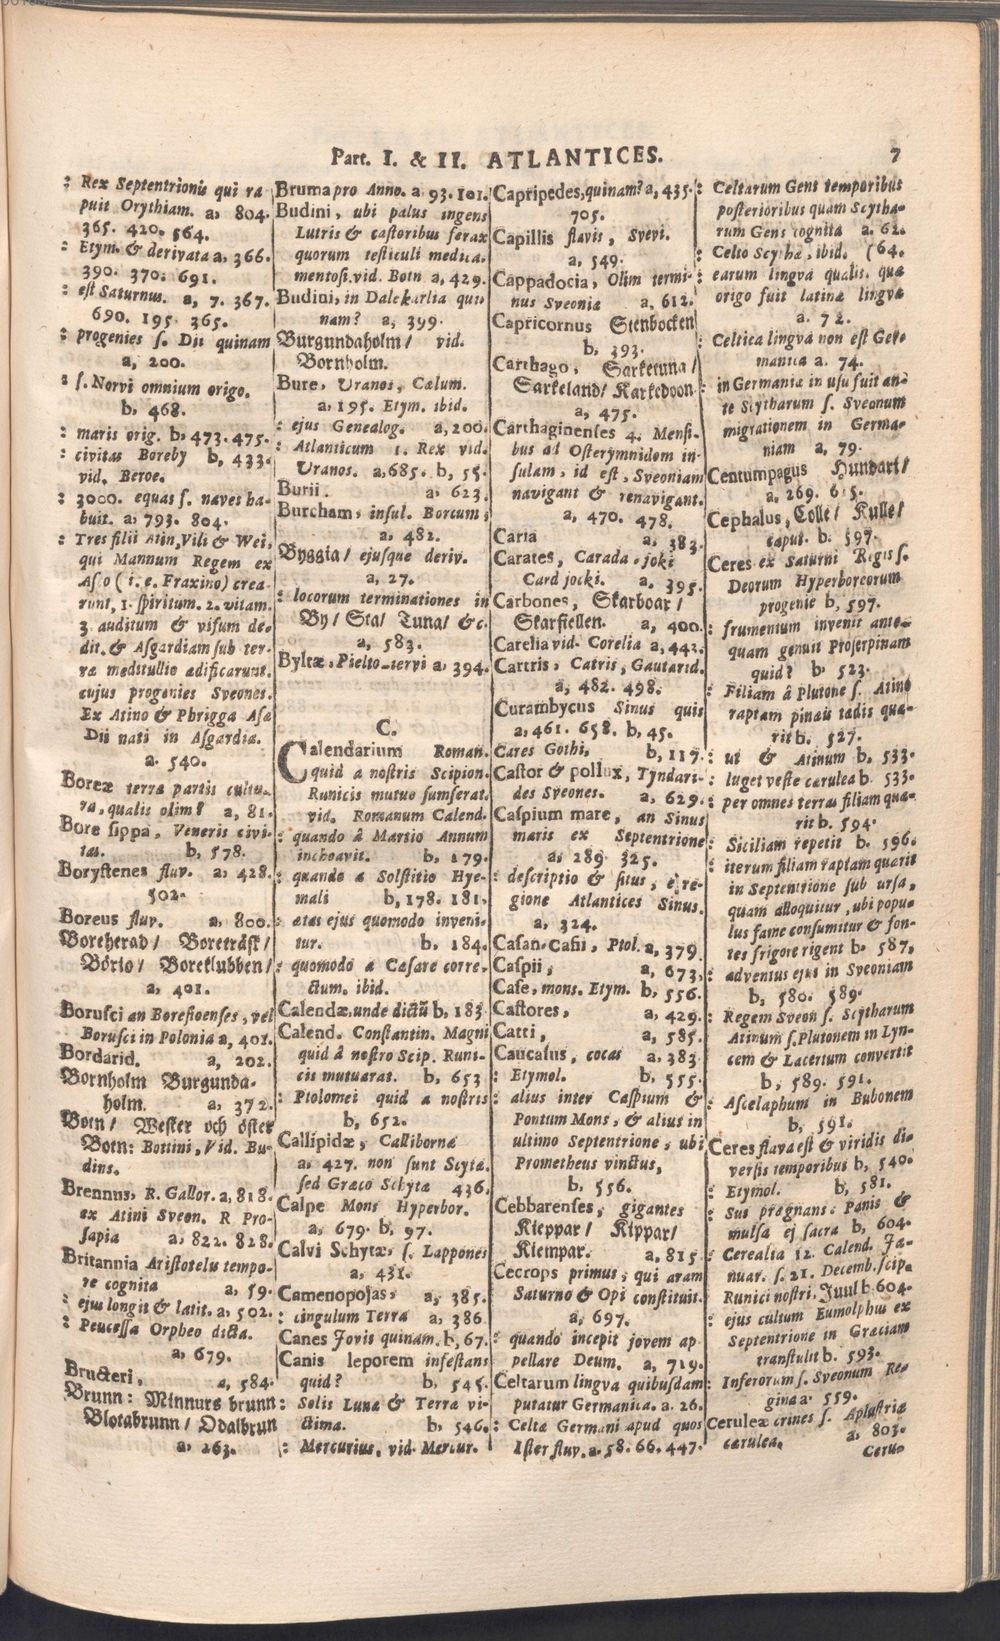 Part. I. & II. ATLANTICES. 7
: Rex Septentrionis qui ra
puit Orythiam. a, 804.
365. 420. 564.
: Etym. & derivata a, 366.
390. 370. 691.
: est Saturnus. a, 7. 367.
690. 195. 365.
: progenies s. Dii quinam
a, 200.
: s. Norvi omnium origo.
b, 468.
: maris orig. b, 473. 475.
: civitas Boreby b, 433.
vid. Beroe.
: 3000. equas s. naves ha-
buit. a, 793. 804.
: Tres filii Atin, Vili & Wei,
qui Mannum Regem ex
Asco ( i. e. Fraxino) crea
runt, 1. spiritum. 2. vitam.
3 auditum & visum de-
dit. & Asgardiam sub ter-
ræ meditullio ædificarunt.
cujus progenies Sveones.
Ex Atino & Phrigga Asæ
Dii nati in Asgardia.
a. 540.
Boreæ terra partis cultu-
ra, qualis olim? a, 81.
Bore sippa, Veneris civi-
tas. b, 578.
Borystenes fluv. a, 428.
502.
Boreus fluv. a, 800.
Boreherad / Boreträsk /
Börio / Boreklubben /
a, 401.
Borusci an Borefioenses, vel
Borusci in Polonia a, 401.
Bordarid. a, 202.
Bornholm Burgunda-
holm. a, 372.
Botn / Wester och öster
Botn: Bottini, Vid. Bu-
dins.
Brennus, R. Gallor. a, 818.
ex Atini Sveon. R Pro-
sapia a, 822. 828.
Britannia Aristotelis tempo-
re cognita a, 59.
: ejus longit & latit. a, 502.
: Peucessa Orpheo dicta.
a, 679.
Bructeri, a, 584.
Brunn: Minnurs brunn:
Blotabrunn / Odalbrun
a, 263.
Bruma pro Anno. a 93. 101.
Budini, ubi palus ingens
Lutris & castoribus ferax
quorum testiculi medica-
mentosi. vid. Botn a, 429.
Budini, in Dalekarlia qui-
nam? a, 399.
Burgundaholm / vid.
Bornholm.
Bure, Uranos, Cælum.
a, 195. Etym. ibid.
: ejus Genealog. a, 200.
: Atlanticum 1. Rex vid.
Uranos. a, 685. b, 55.
Burii. a, 623.
Burcham, insul. Borcum,
a, 482.
Byggia / ejusque deriv.
a, 27.
: locorum terminationes in
By / Sta / Tuna / &c.
a, 583.
Byltæ, Pielto-tervi a, 394.
C.
Calendarium Roman.
quid a nostris Scipion.
Runicis mutuo sumserat.
vid. Romanum Calend.
: quando â Martio Annum
inchoavit. b, 179.
: quando a Solstitio Hye-
mali b, 178. 181.
: ætas ejus quomodo inveni-
tur. b, 184.
: quomodo a Cæsare corre-
ctum. ibid.
Calendæ, unde dictū b, 183.
Calend. Constantin. Magni
quid â nostro Scip. Runi-
cis mutuarat. b, 653
: Ptolomei quid a nostris
b, 652.
Callipidæ, Callibornæ
a, 427. non sunt Scytæ.
sed Græco Schytæ 436.
Calpe Mons Hyperbor.
a, 679. b, 97.
Calvi Schytæ, s. Lappones
a, 431.
Camenopolas, a, 385.
: cingulum Terræ a, 386.
Canes Jovis quinam. b, 67.
Canis leporem infestans
quid? b, 545.
: Solis Lunæ & Terræ vi-
ctima. b, 546.
: Mercurius, vid. Mercur.
Capripedes, quinam? a, 435.
705.
Capillis flavis, Svevi.
a, 549.
Cappadocia, Olim termi-
nus Sveoniæ a, 612.
Capricornus Stenbocken
b, 393.
Carthago, Sarketuna /
Sarkeland / Karkedoon.
a, 475.
Carthaginenses 4. Mensi-
bus ad Osterymnidem in-
sulam, id est, Sveoniam
navigant & renavigant.
a, 470. 478.
Caria a, 383.
Carates, Carada-joki
Card jocki. a. 395.
Carbones, Skarboar /
Skarfiellen. a, 400.
Carelia vid. Corelia a, 442.
Cartris, Catris, Gautarid.
a, 482. 498.
Curambycus Sinus quis
a, 461. 658. b, 45.
Cares Gothi, b, 117.
Castor & pollux, Tyndari-
des Sveones. a, 629.
Caspium mare, an Sinus
maris ex Septentrione
a, 289. 325.
: descriptio & situs, è re-
gione Atlantices Sinus.
a, 324.
Casan-Casii, Ptol. a, 379
Caspii, a, 673,
Case, mons. Etym. b, 556.
Castores, a, 429.
Catti, a, 585.
Caucasus, cocas a. 383.
: Etymol. b, 555.
: alius inter Caspium &
Pontum Mons, & alius in
ultimo Septentrione, ubi
Prometheus vinctus,
b, 556.
Cebbarenses, gigantes
Kieppar / Kippar /
Kiempar. a, 815
Cecrops primus, qui aram
Saturno & Opi constituit.
a, 697.
: quando incepit jovem ap
pellare Deum. a, 719.
Celtarum lingva quibusdam
putatur Germanica. a. 26.
: Celtæ Germani apud quos
Ister fluv. a. 58. 66. 447.
: Celtarum Gens temporibus
posterioribus quam Scytha-
rum Gens cognita a. 62.
: Celto Scythæ, ibid. (64.
: earum lingva qualis, quæ
origo fuit latinæ lingvæ
a. 72.
: Celtica lingva non est Ger-
manica a. 74.
: in Germania in usu fuit an-
te Scytharum s. Sveonum
migrationem in Germa-
niam a, 79.
Centumpagus Hundari /
a, 269. 615.
Cephalus, Colle / Kulle /
caput. b. 597.
Ceres ex Saturni Regis s.
Deorum Hyperboreorum
progenie b, 597.
: frumentum invenit ante-
quam genuit Proserpinam
quid? b. 523.
: Filiam â Plutone s. Atino
raptam pinaū tædis quæ-
rit b. 527.
: ut & Atinum b, 533.
: luget veste cærulea b. 533.
: per omnes terras filiam quæ-
rit b. 594.
: Siciliam repetit b. 596.
: iterum filiam raptam quærit
in Septentrione sub ursa,
quam alloquitur, ubi popu-
lus fame consumitur & fon-
tes frigore rigent b. 587,
: adventus ejus in Sveoniam
b, 580. 589.
: Regem Sveon s. Scytharum
Atinum s. Plutonem in Lyn-
cem & Lacertum convertit
b, 589. 591.
: Ascelaphum in Bubonem
b, 591.
Ceres flava est & viridis di-
versis temporibus b, 540.
: Etymol. b, 581.
: Sus prægnans. Panis &
mulsa ej sacra b, 604.
: Cerealia 12. Calend. Ja-
nuar. s. 21. Decemb. scip.
Runici nostri, Juul b 604.
: ejus cultum Eumolphus ex
Septentrione in Græciam
transtulit b. 593.
: Inferorum s. Sveonum Re-
gina a. 559.
Ceruleæ crines s. Aplustria
cærulea. a, 803.
Ceru-